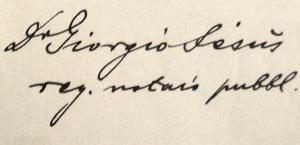 Dr Giorgio Sésùs
reg. notaio pubbl.